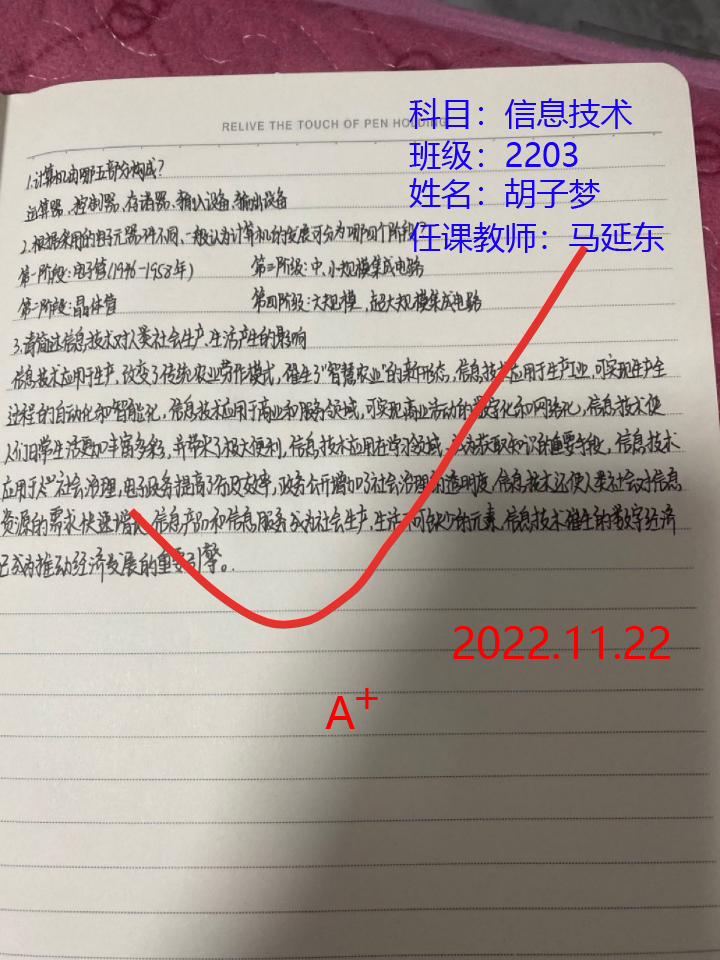 RELIVE THE TOUCH OF PEN HOLDING
科目：信息技术
班级：2203
姓名：胡子梦
任课教师：马延东
1.计算机由哪五部分构成？
运算器、控制器、存诸器、输入设备、输出设备
2.根据采用的电子元器件不同,一般认为计算机的发展可分为哪四个阶段?
第一阶段:电子管(1946-1958年) 第三阶段:中、小规模集成电路
第二阶段:晶体管 第四阶段:大规模,超大规模集成电路
3.请简述信息技术对人类社会生产、生活产生的影响
信息技术应用于生产,改变了传统农业劳作模式,催生了"智慧农业"的新形态,信息技术应用于生产工业,可实现生产全
过程的自动化和智能化,信息技术应用于商业和服务领域,可实现商业活动的数字化和网络化,信息技术使
人们日常生活更加丰富多彩,并带来了极大便利,信息技术应用在学习领域,成为获取知识的重要手段,信息技术
应用于人社会治理,电子政务提高了行政效率,政务公开增加了社会治理的透明度,信息技术还使人类社会对信息
资源的需求快速增长,信息产品和信息服务成为社会生产,生活不可缺少的元素,信息技术催生的数字经济
已成为推动经济发展的重要引擎。
2022.11.22
A+